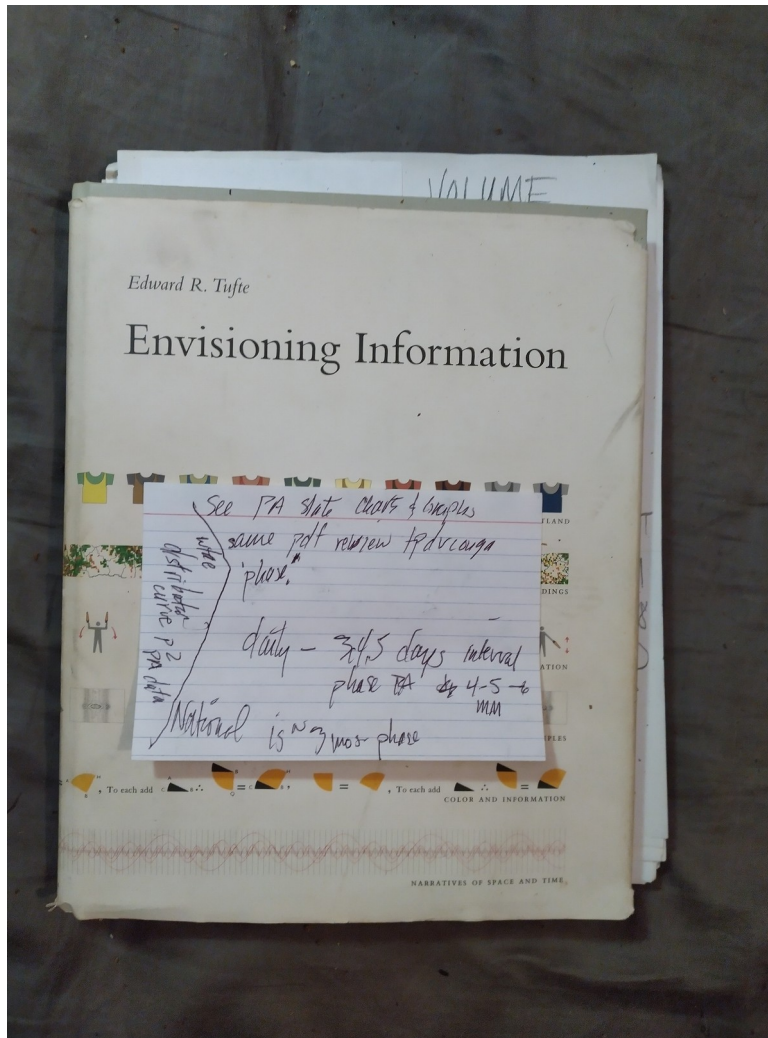 VOLUME
Edward R. Tufte
Envisioning Information
See PA state charts & Graphs
same pdf review
"phase"
daily — days interval
phase PA 4-5
MM
National is ~ 3 mos phase
curve P2
PA data
TLAND
DINGS
ATION
PLES
, To each add
, To each add
COLOR AND INFORMATION
NARRATIVES OF SPACE AND TIME